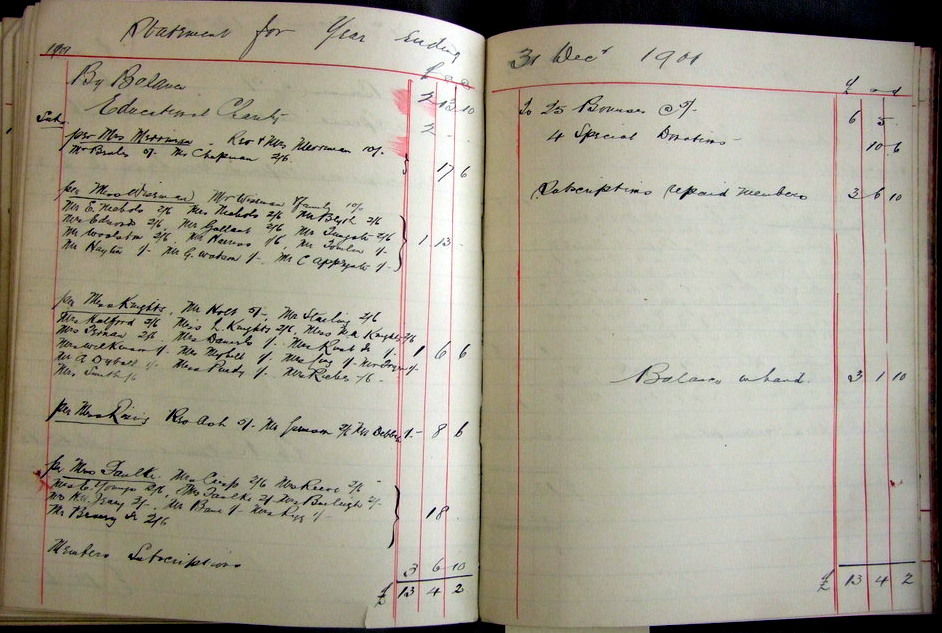 Statement for Year Ending
1901
£ s d
By Balance 2 13 10
Educational Charity 2 - -
Sub.
per Mrs Merriman Rev & Mrs Merriman 10/-
Mr Beales 5/- Mr Chapman 2/6 } 17 6
per Miss Wiseman Mr Wiseman & family 10/-
Mr E. Nichols 2/6 Mrs Nichols 2/6 Mr Bligh 2/6
Mrs Edwards 2/6 Mr Gallant 2/6 Mr Tungate 2/6
Mr Woolston 2/6 Mr Barnes 1/6 Mr
Mr Hayton 1/- Mr G. Watson 1/- Mr C Applegate 1/- } 1 13 -
per Miss Knights, Mr Holt 5/- Mr Starling 2/6
Mrs Halford 2/6 Miss L Knights 2/6, Miss M A Knights 2/6
Mrs 2/6 Mrs Daniels 1/- Mrs 1/-
Mrs Wilkinson 1/- Mrs 1/- Mrs 1/- 1 6 6
Mr A Dyball 1/- Miss Purdy 1/- Mrs Riches /6
Mrs Smith /6
per Mrs Rising Rev Ash 5/- Mr 2/6 Mr Debbage 1/- 8 6
per Miss Faulke Mr 2/6 Mrs Reeve 2/6
Mrs E. Youngs 2/6, Mrs Faulke 2/- Mrs Burleigh 2/-
2/- Mr Bane 1/- Mrs 1/-
Mr 2/6 } 18
Members Subscriptions 3 6 10
£ 13 4 2
31 Decr 1901
£ s d
To 25 Bonuses @ 5/- 6 5 -
4 Special Donations 10 6
Subscriptions repaid members 3 6 10
Balance in hand 3 1 10
£ 13 4 2